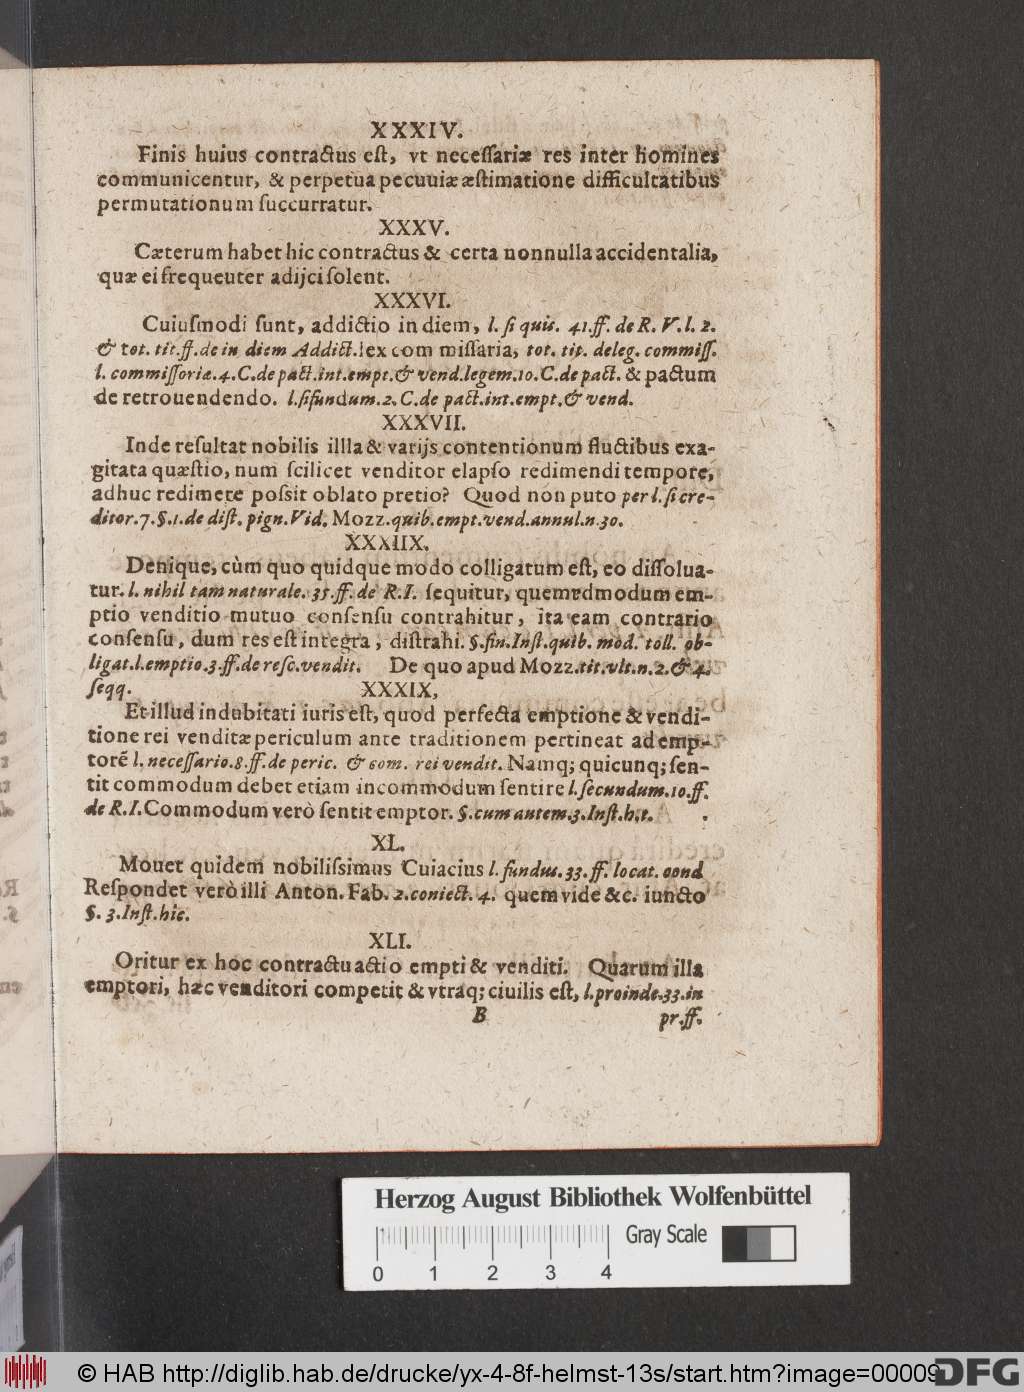 XXXIV.
Finis huius contractus est, vt necessariæ res inter homines
communicentur, & perpetua pecuuiæ æstimatione difficultatibus
permutationum succurratur.
XXXV.
Cæterum habet hic contractus & certa nonnulla accidentalia,
quæ ei frequeuter adijci solent.
XXXVI.
Cuiusmodi sunt, addictio in diem, l. si quis. 41.ff. de R. V. l. 2.
& tot. tit.ff.de in diem Addict.lex commissaria, tot. tit. deleg. commiss.
l. commissoriæ.4.C.de pact.int.empt.& vend.legem.10.C.de pact. & pactum
de retrouendendo. l.si fundum.2.C.de pact.int.empt.& vend.
XXXVII.
Inde resultat nobilis illla & varijs contentionum fluctibus exa-
gitata quæstio, num scilicet venditor elapso redimendi tempore,
adhuc redimere possit oblato pretio? Quod non puto per l. si cre-
ditor.7.§.1.de dist. pign.Vid. Mozz.quib.empt.vend.annul.n.30.
XXXIIX.
Denique, cùm quo quidque modo colligatum est, eo dissolua-
tur. l. nihil tam naturale. 35.ff. de R.I. sequitur, quemvdmodum em-
ptio venditio mutuo consensu contrahitur, ita eam contrario
consensu, dum res est integra, distrahi. §.fin.Inst.quib. mod. toll. ob-
ligat.l.emptio.3.ff.de resc.vendit. De quo apud Mozz.tit.vlt.n.2.& 4.
seqq.
XXXIX,
Et illud indubitati iuris est, quod perfecta emptione & vendi-
tione rei venditæ periculum ante traditionem pertineat ad emp-
torē l. necessario.8.ff.de peric. & com. rei vendit. Namq; quicunq; sen-
tit commodum debet etiam incommodum sentire l.secundum.10.ff.
de R.I. Commodum verò sentit emptor. §.cum autem.3.Inst.h.t.
XL.
Mouet quidem nobilissimus Cuiacius l.fundus.33.ff.locat.cond
Respondet verò illi Anton. Fab. 2.coniect.4. quem vide &c. iuncto
§. 3.Inst.hic.
XLI.
Oritur ex hoc contractu actio empti & venditi. Quarum illa
emptori, hæc venditori competit & vtraq; ciuilis est, l.proinde.33.in
B
pr.ff.
Herzog August Bibliothek Wolfenbüttel
Gray Scale
0 1 2 3 4
© HAB http://diglib.hab.de/drucke/yx-4-8f-helmst-13s/start.htm?image=00009
DFG